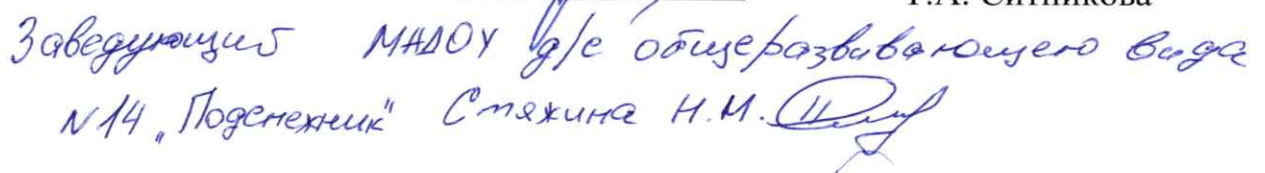 Т.А. Ситникова
Заведующий МАДОУ д/с общеразвивающего вида
N14 „Подснежник“ Стяжина Н.М.